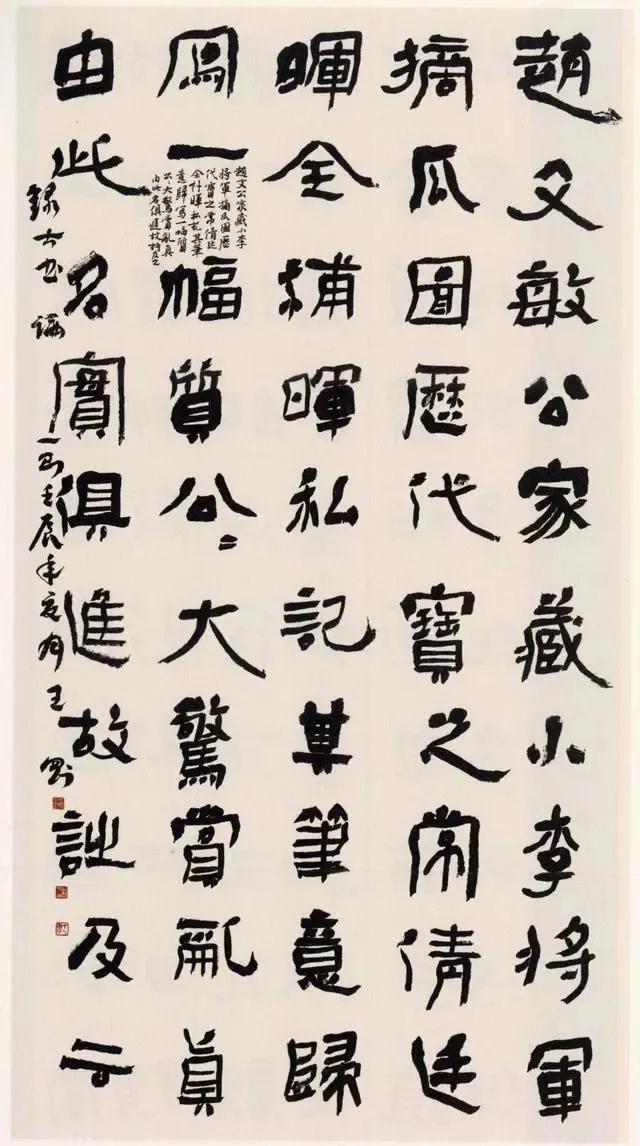 趙文敏公家藏小李將軍
摘瓜圖歷代寶之常倩廷
暉全補暉私記其筆意歸
寫一幅質公〻大驚賞亂真
由此名實俱進故及云
趙文公家藏小李
將軍摘瓜圖歷
代寶之常倩廷
全什暉私記其筆
意歸寫一幅質
公大驚賞亂真
由此名俱進故
錄古畫論一則壬辰年夏月王